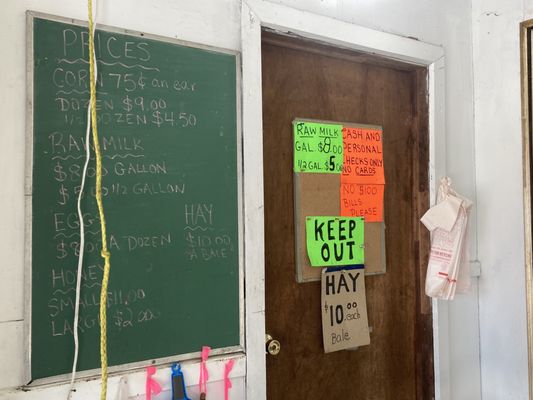 PRICES
CORN 75¢ an ear
DOZEN $9.00
1/2 DOZEN $4.50
RAW MILK
$8.00 GALLON
$5.00 1/2 GALLON
EGGS
$8.00 A DOZEN
HAY
$10.00
A BALE
HONEY
SMALL $11.00
LARGE
RAW MILK
GAL. $8.00
1/2 GAL. $5.00
CASH AND
PERSONAL
CHECKS ONLY
NO CARDS
NO $100
BILLS
PLEASE
KEEP
OUT
HAY
$10.00 each
Bale